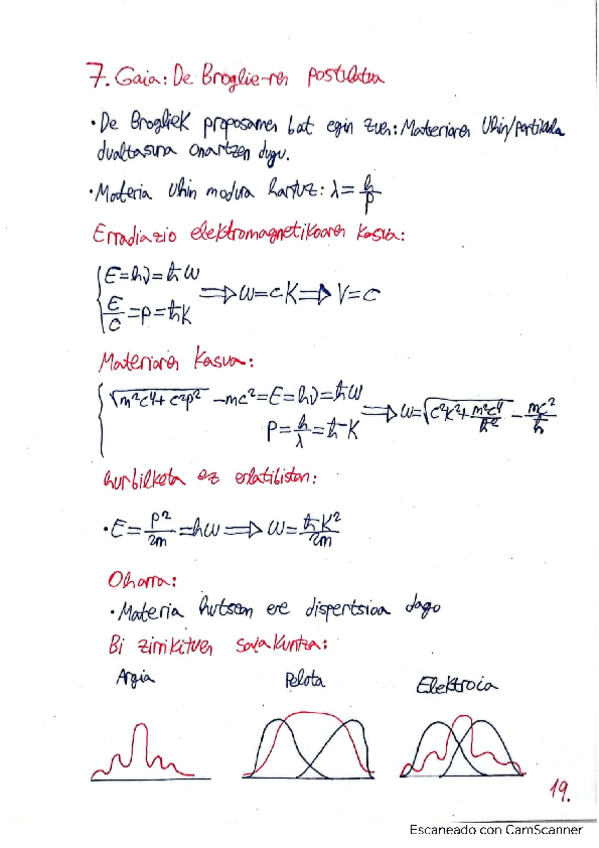 7. Gaia: De Broglie-ren postulatua
• De Brogliek proposamen bat egin zuen: Materiaren Uhin/partikula
dualtasuna onartzen dugu.
• Materia uhin modura hartuz: λ = h/p
Erradiazio elektromagnetikoaren kasua:
E = hν = ħω
E/c = p = ħk ⟹ ω = ck ⟹ v = c
Materiaren kasua:
√(m²c⁴ + c²p²) - mc² = E = hν = ħω
p = h/λ = ħk ⟹ ω = √(c²k² + m²c⁴/ħ²) - mc²/ħ
hurbilketa ez erlatibista:
• E = p²/2m = ħω ⟹ ω = ħk²/2m
Oharra:
• Materia hutsean ere dispertsioa dago
Bi zirrikituen saiakuntza:
Argia Pelota Elektroia
19.
Escaneado con CamScanner